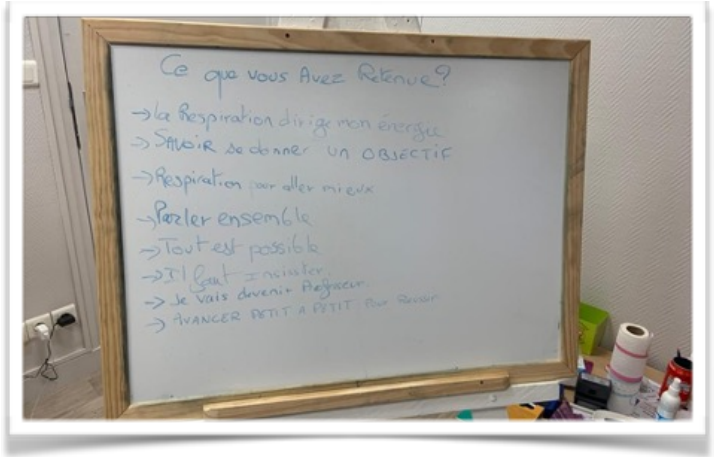 Ce que vous Avez Retenue?
→ la Respiration dirige mon énergie
→ SAVOIR se donner UN OBJECTIF
→ Respiration pour aller mieux
→ Parler ensemble
→ Tout est possible
→ Il faut insister.
→ Je vais devenir
→ AVANCER PETIT A PETIT Pour Réussir